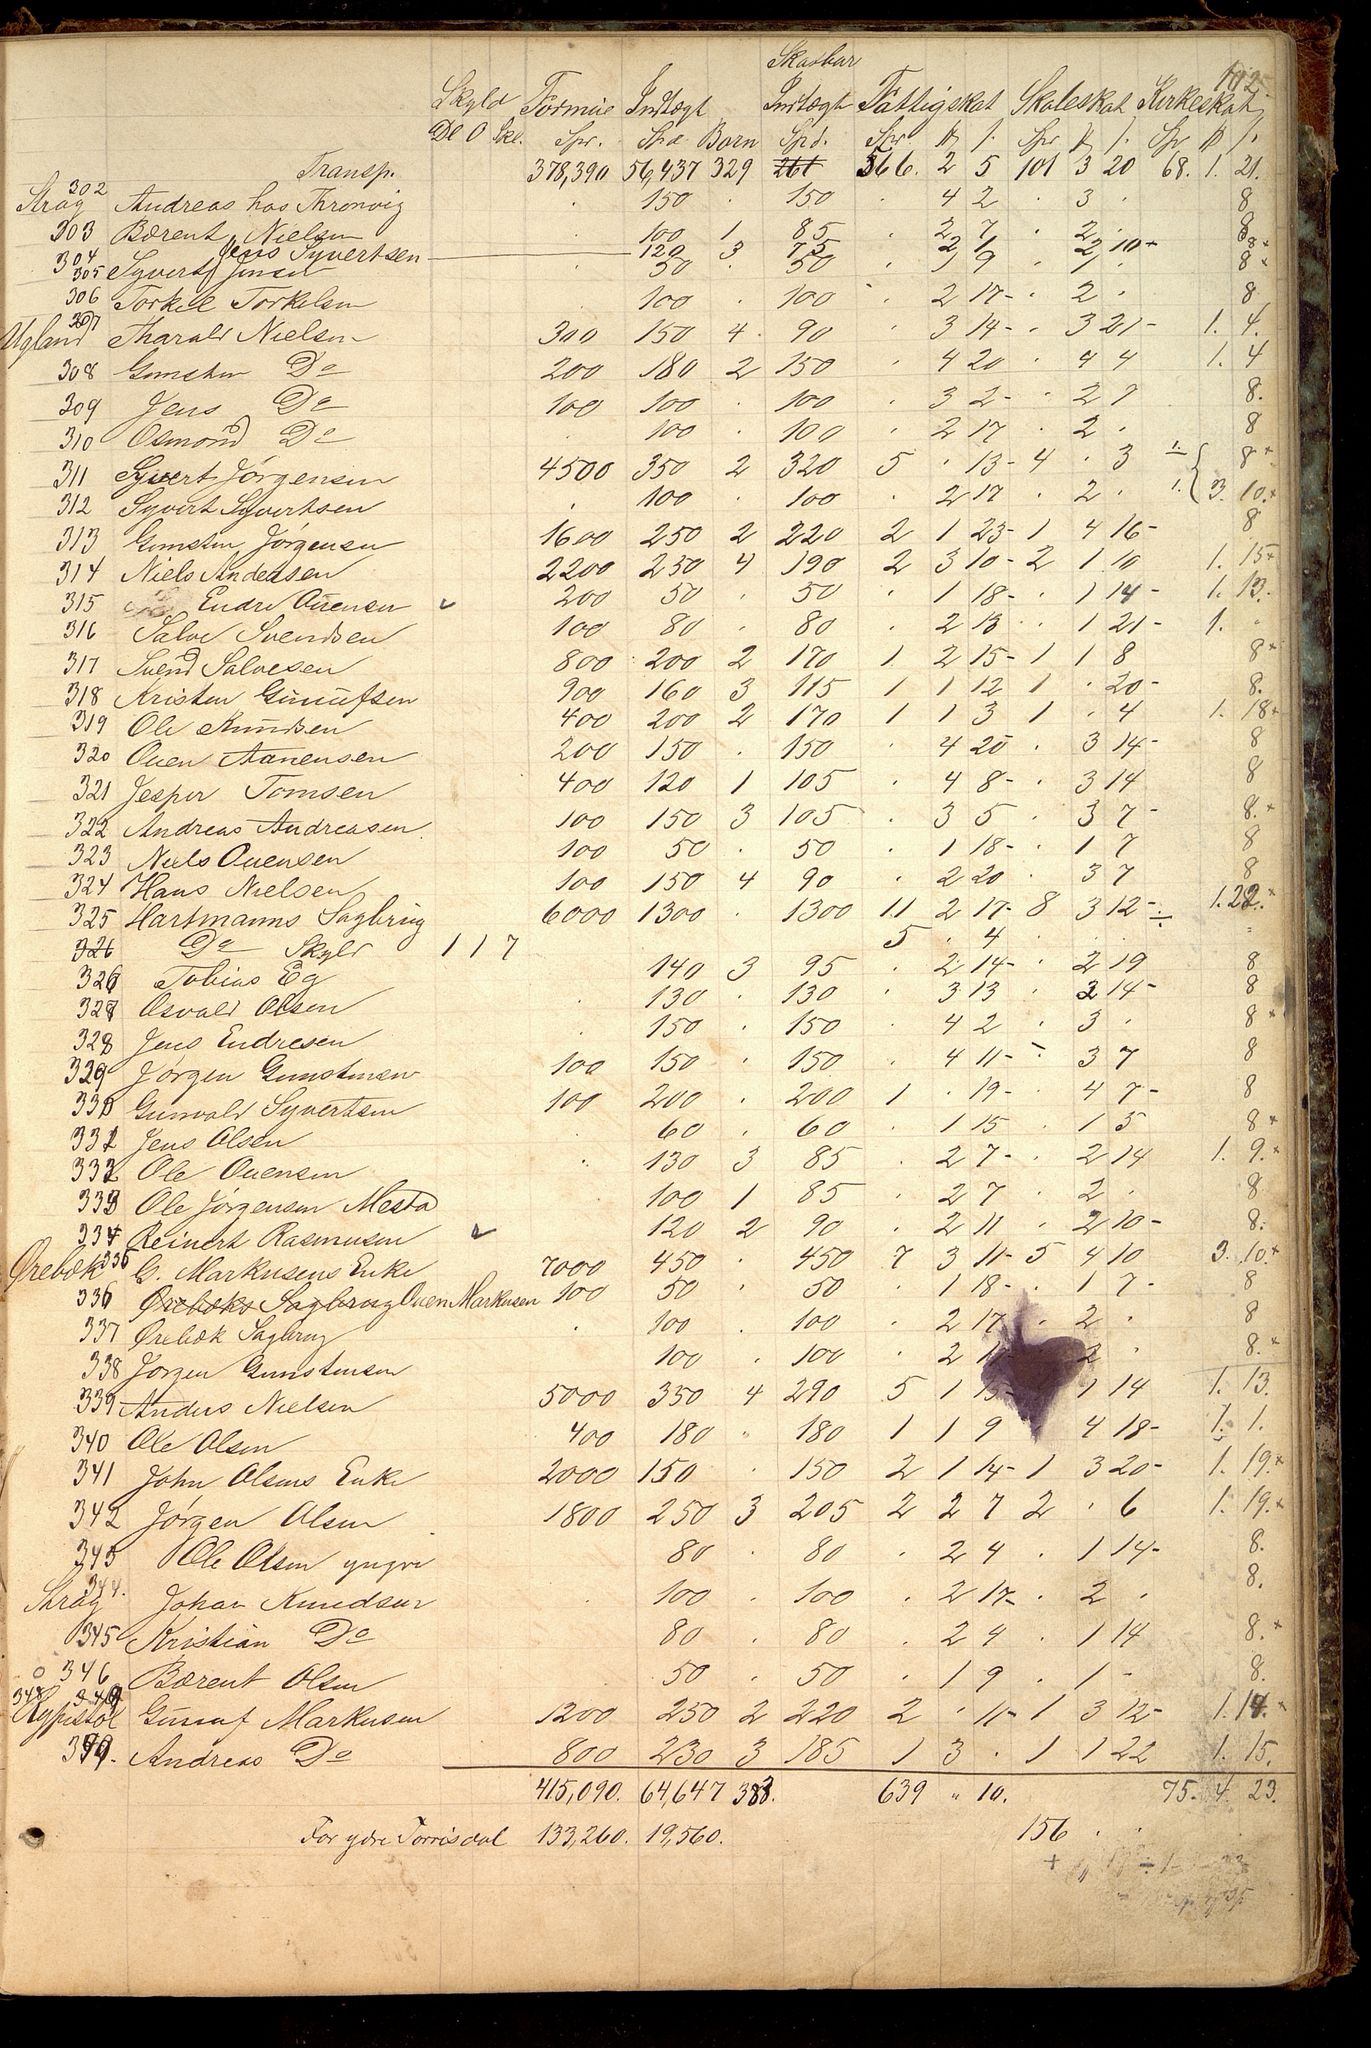 102
Skatbar
Skyld Formue Indtægt Indtægt Fattigskat Skoleskat Kirkeskat
Dl O Skl. Spr. Spd Børn Spd. Spr Spr Spr
Transp. 378,390 56,437 329 261 566. 2 5 101 3 20 68. 1. 21.
302 Strag Andreas hos Thronvig . 150 . 150 . 4 2 . 3 . 8
303 Bærent Nielsen 100 1 85 . 2 7 . 2 . 8
304 Jens Syvertsen 120 3 75 2 1 2 10 8
305 Syvert Jensen 50 . 50 . 1 9 . 1 . 8
306 Torkel Torkelsen 100 . 100 . 2 17 . 2 . 8
307 Ugland Tharald Nielsen 300 150 4 90 . 3 14 . 3 21 1. 4.
308 Gunsten Do 200 180 2 150 . 4 20 . 4 4 1. 4
309 Jens Do 100 100 . 100 . 3 2 . 2 7 8.
310 Osmond Do . 100 . 100 . 2 17 . 2 . 8
311 Syvert Jørgensen 4500 350 2 320 5 . 13 4 . 3 8
312 Syvert Syvertsen . 100 . 100 . 2 17 . 2 . 3. 10.
313 Gunsten Jørgensen 1600 250 2 220 2 1 23 1 4 16 8
314 Niels Andersen 2200 250 4 190 2 3 10 2 1 10 1. 15
315 Endre Ouensen 200 50 . 50 . 1 18 . 1 14 1. 13.
316 Salve Svendsen 100 80 . 80 . 2 13 . 1 21 1. .
317 Svend Salvesen 800 200 2 170 1 2 15 1 1 8 8
318 Kristen Gunnufsen 900 160 3 115 1 1 12 1 . 20 8.
319 Ole Knudsen 400 200 2 170 1 1 3 1 . 4 1. 18
320 Ouen Aanensen 200 150 . 150 . 4 20 . 3 14 8
321 Jesper Tomsen 400 120 1 105 . 4 8 . 3 14 8
322 Andreas Andreasen 100 150 3 105 . 3 5 . 3 7 8.
323 Niels Ouensen 100 50 . 50 . 1 18 . 1 7 8
324 Hans Nielsen 100 150 4 90 . 2 20 . 3 7 8
325 Hartmanns Sagbrug 6000 1300 . 1300 11 2 17 8 3 12 1. 22.
326 Do Skyld 1 1 7 5 . 4 . . .
326 Tobias Eg 140 3 95 . 2 14 . 2 19 8
327 Osvald Olsen 130 . 130 . 3 13 . 2 14 8
328 Jens Endresen 150 . 150 . 4 2 . 3 . 8
329 Jørgen Gunstensen 100 150 . 150 . 4 11 . 3 7 8
330 Gunvald Syvertsen 100 200 . 200 1 . 19 . 4 7 8
331 Jens Olsen 60 . 60 . 1 15 . 1 5 8
332 Ole Ouensen . 130 3 85 . 2 7 . 2 14 1. 9.
333 Ole Jørgensen Mesta 100 1 85 . 2 7 . 2 . 8
334 Reinert Rasmusen 120 2 90 . 2 11 . 2 10 8.
335 Ørebæk G. Markusens Enke 7000 450 . 450 7 3 11 5 4 10 3. 10.
336 Ørebæks Sagbrug Ouen Markusen 100 50 . 50 . 1 18 . 1 7 8
337 Ørebæk Sagbrug . 100 . 100 . 2 17 . 2 . 8
338 Jørgen Gunstensen 100 . 100 . 2 2 . 8.
339 Anders Nielsen 5000 350 4 290 5 1 1 14 1. 13.
340 Ole Olsen 400 180 . 180 1 1 9 . 4 18 1. 1.
341 John Olsens Enke 2000 150 . 150 2 1 14 1 3 20 1. 19.
342 Jørgen Olsen 1800 250 3 205 2 2 7 2 . 6 1. 19.
343 Ole Olsen yngre 80 . 80 . 2 4 . 1 14 8.
344. Strag Johan Knudsen . 100 . 100 . 2 17 . 2 . 8.
345 Kristian Do 80 . 80 . 2 4 . 1 14 8.
346 Bærent Olsen 50 . 50 . 1 9 . 1 8.
348 Rypestøl Gunuf Markusen 1200 250 2 220 2 . 11 1 3 12 1. 14.
Andreas Do 800 230 3 185 1 3 . 1 1 22 1. 15.
415,090. 64,647 383. 639 " 10. 75. 4 23.
For ydre Torrisdal 133,260. 19,560. 156 . .